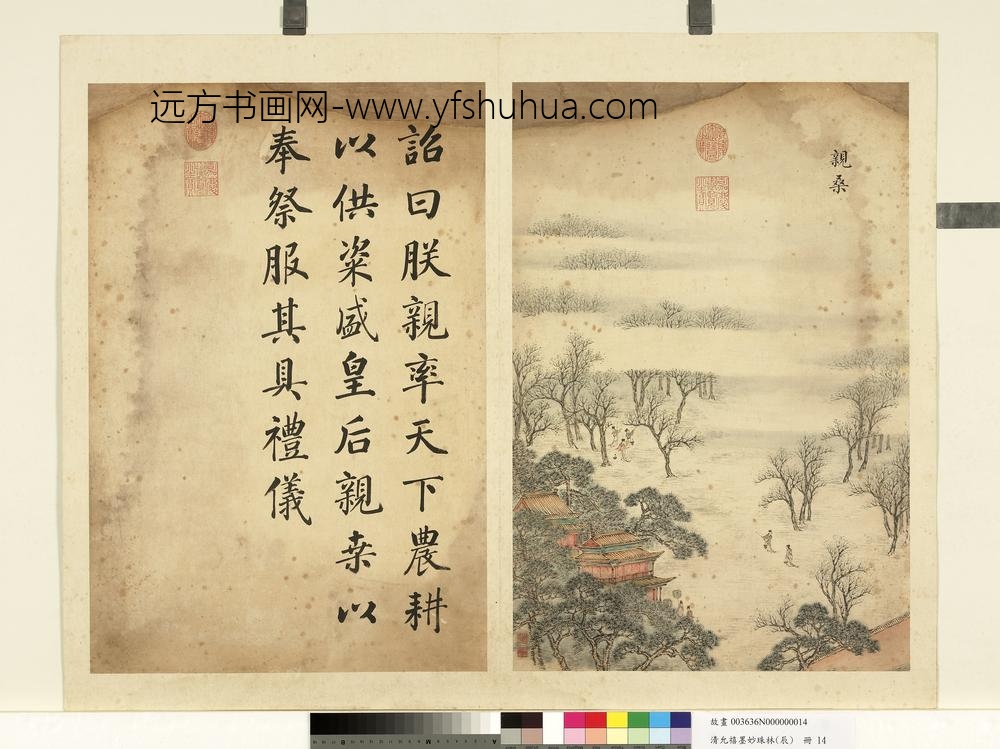 远方书画网-www.yfshuhua.com
親桑
詔曰朕親率天下農耕
以供粢盛皇后親桒以
奉祭服其具禮儀
故畫 003636N000000014
清允禧墨妙珠林(辰) 冊 14